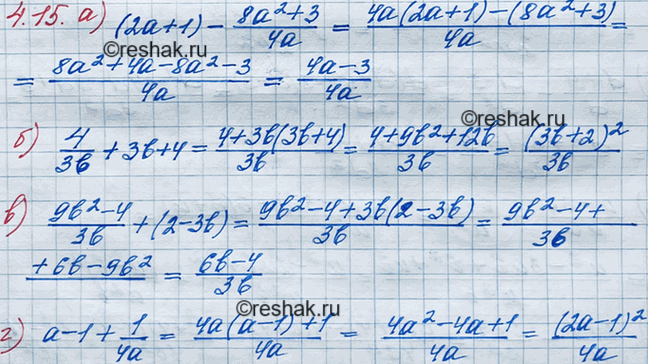 4.15. а) (2a+1) - \frac{8a²+3}{4a} = \frac{4a(2a+1)-(8a²+3)}{4a} =
©reshak.ru
= \frac{8a²+4a-8a²-3}{4a} = \frac{4a-3}{4a}
©reshak.ru
б) \frac{4}{3b} + 3b+4 = \frac{4+3b(3b+4)}{3b} = \frac{4+9b²+12b}{3b} = \frac{(3b+2)²}{3b}
в) \frac{9b²-4}{3b} + (2-3b) = \frac{9b²-4+3b(2-3b)}{3b} = \frac{9b²-4+}{3b}
\frac{+6b-9b²}{} = \frac{6b-4}{3b}
©reshak.ru
г) a-1+\frac{1}{4a} = \frac{4a(a-1)+1}{4a} = \frac{4a²-4a+1}{4a} = \frac{(2a-1)²}{4a}